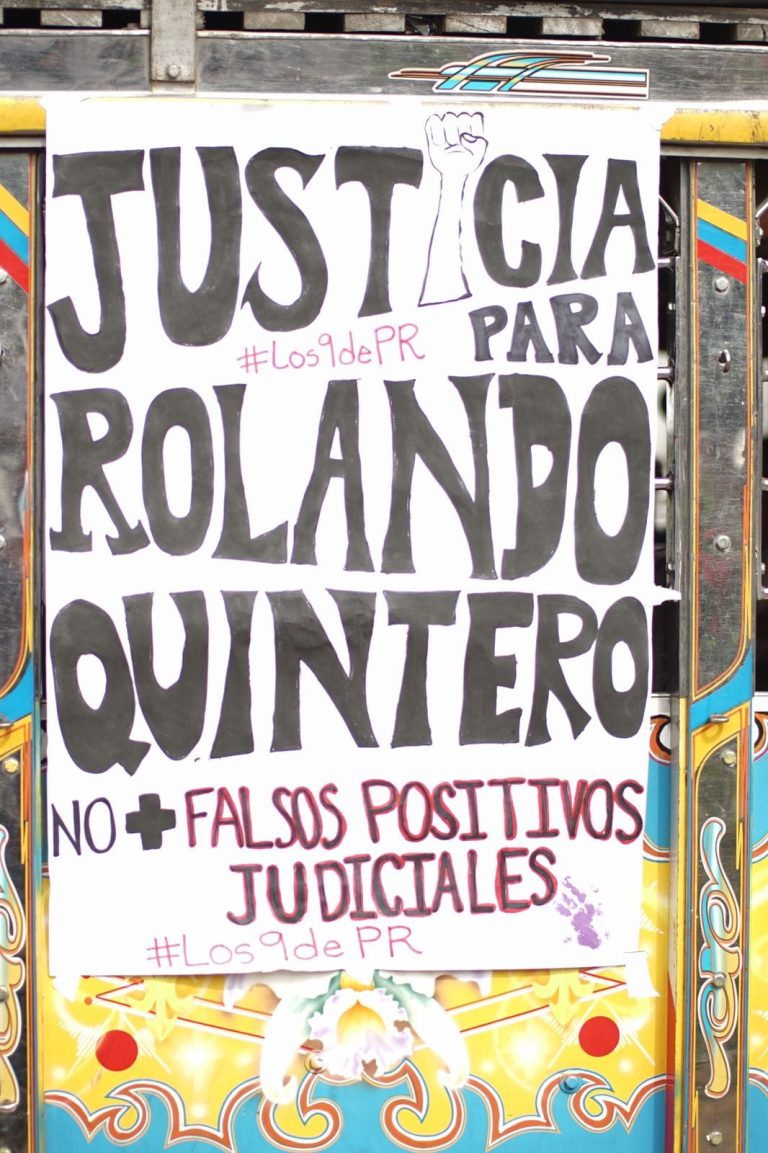 JUSTICIA
PARA
#Los9dePR
ROLANDO
QUINTERO
NO + FALSOS POSITIVOS
JUDICIALES
#Los9dePR